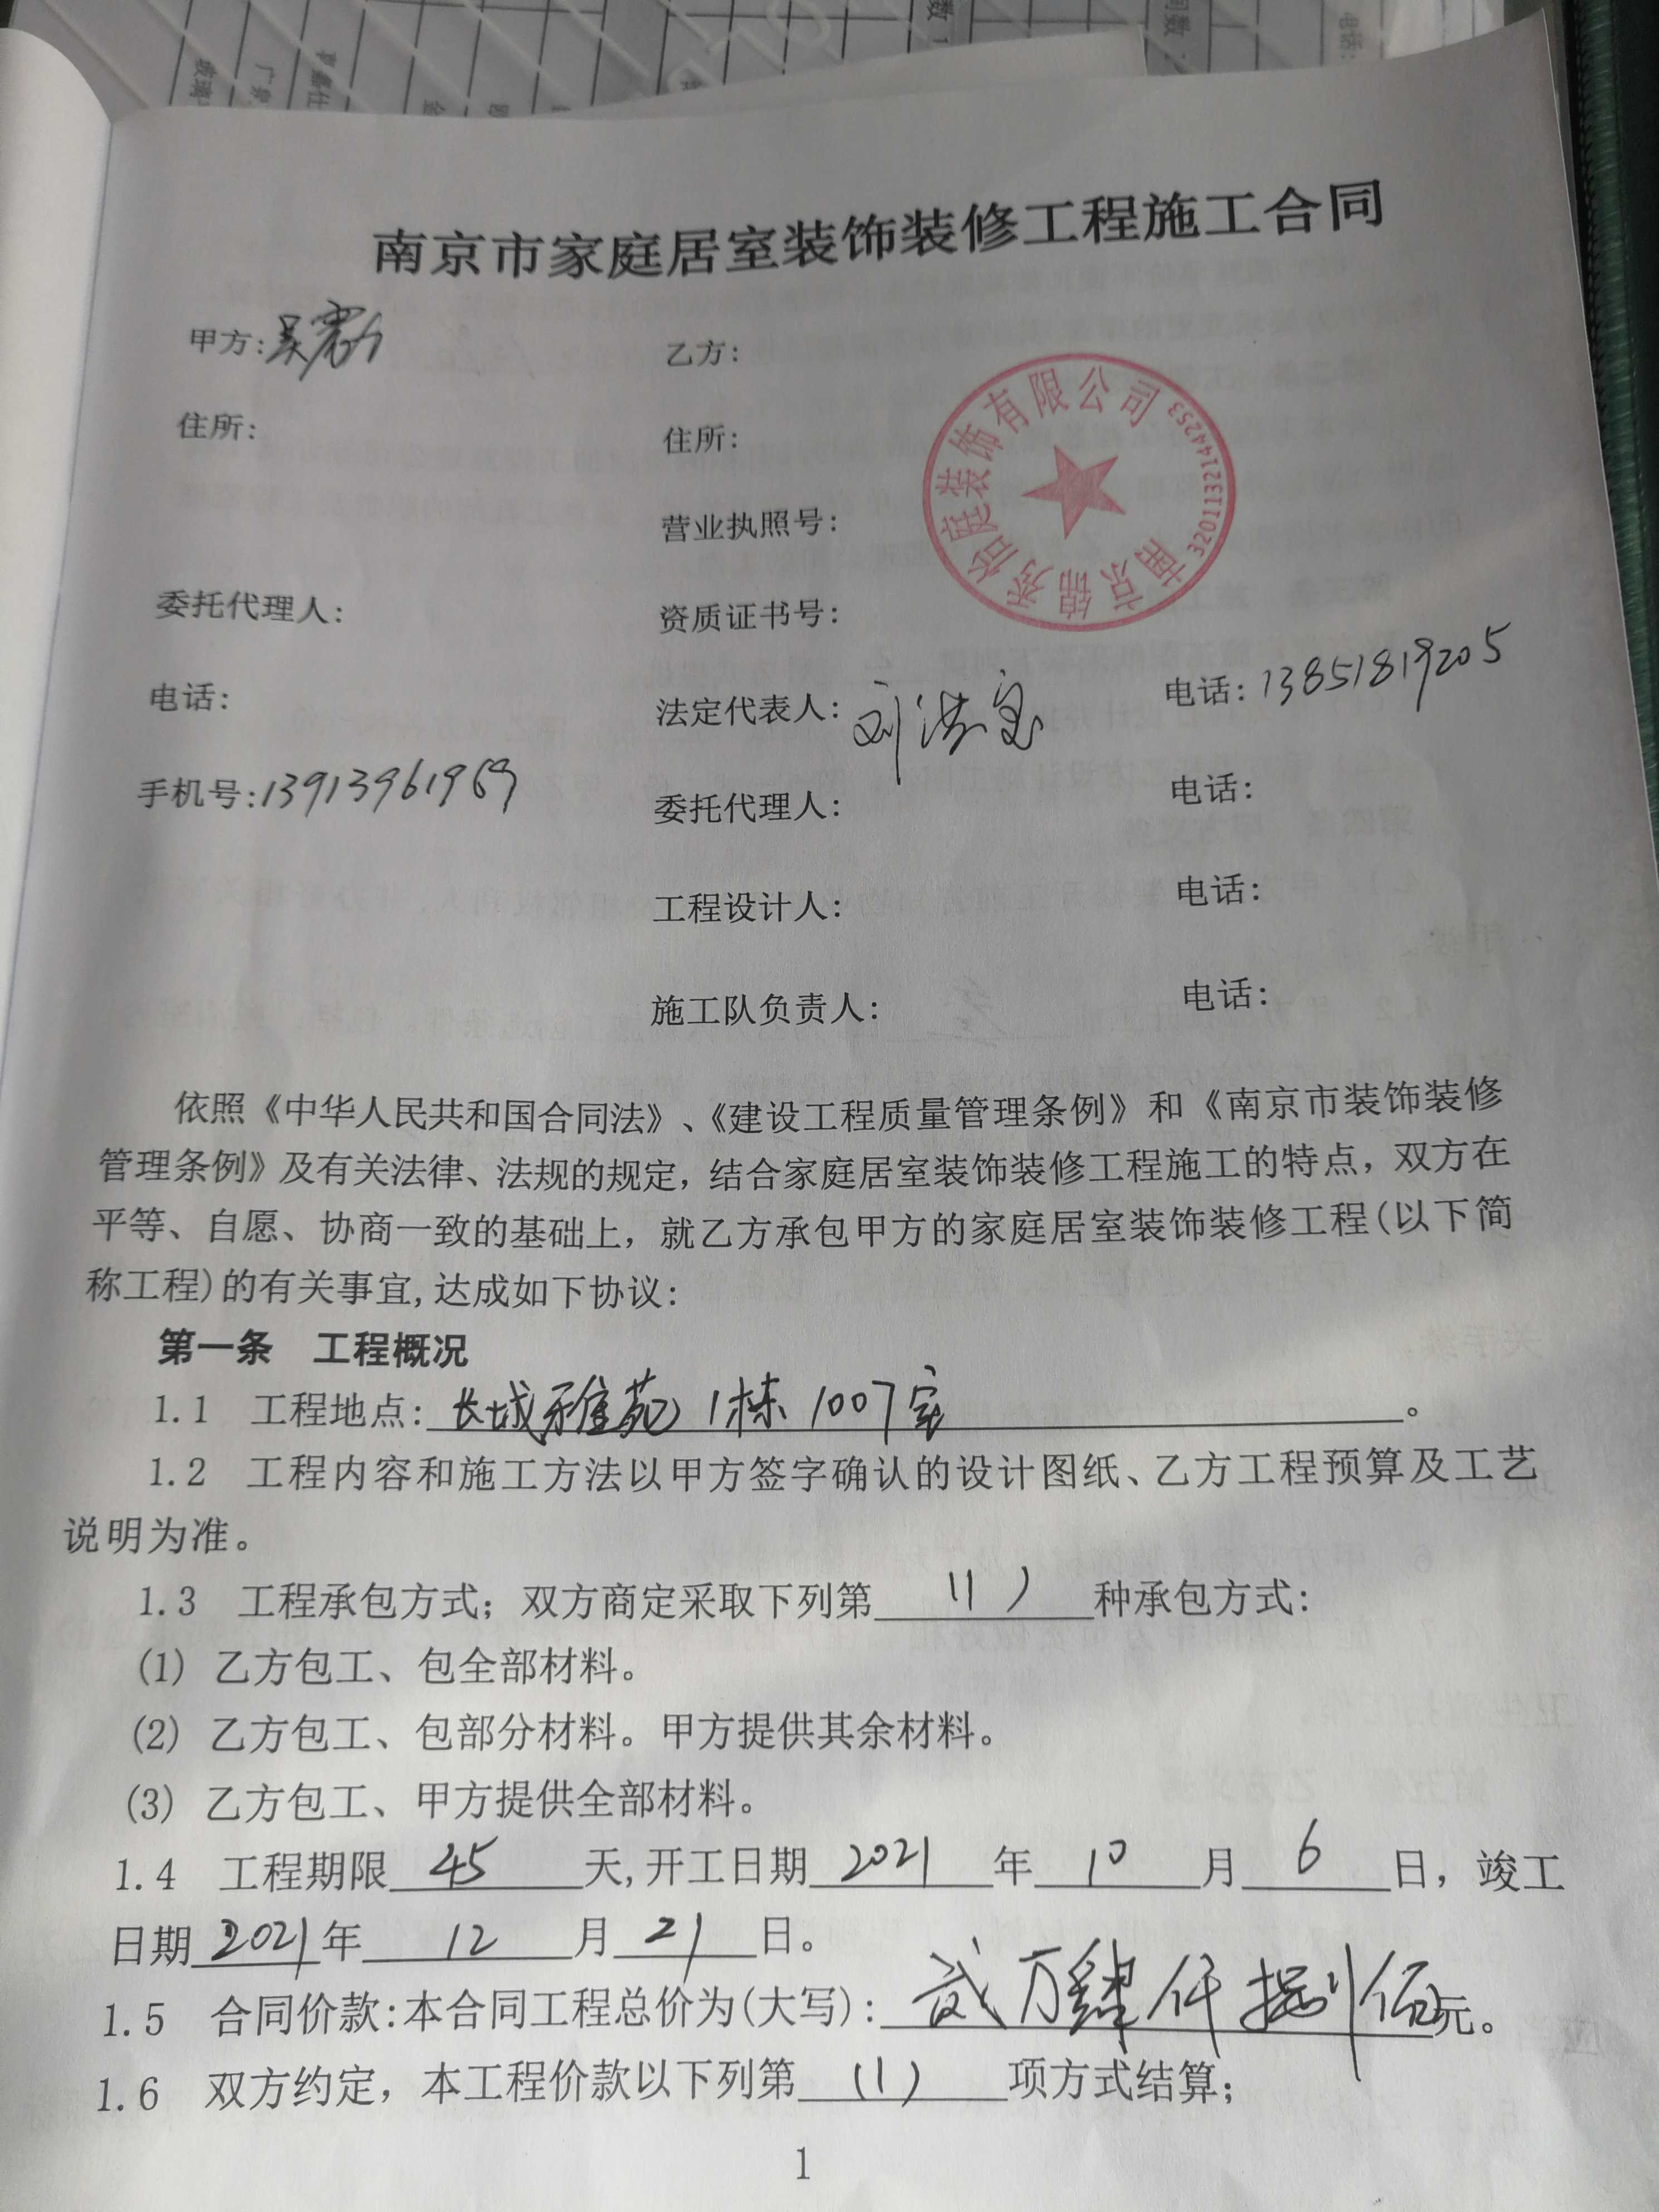 南京市家庭居室装饰装修工程施工合同
甲方:吴
乙方:
住所:
住所:
南京锦秀佰庭装饰有限公司
3201132144253
营业执照号:
委托代理人:
资质证书号:
电话:
法定代表人:刘洪宝
电话:13851819205
手机号:13913961969
委托代理人:
电话:
工程设计人:
电话:
施工队负责人:
电话:
依照《中华人民共和国合同法》、《建设工程质量管理条例》和《南京市装饰装修
管理条例》及有关法律、法规的规定,结合家庭居室装饰装修工程施工的特点,双方在
平等、自愿、协商一致的基础上,就乙方承包甲方的家庭居室装饰装修工程(以下简
称工程)的有关事宜,达成如下协议:
第一条 工程概况
1.1 工程地点:长城雅苑1栋1007室。
1.2 工程内容和施工方法以甲方签字确认的设计图纸、乙方工程预算及工艺
说明为准。
1.3 工程承包方式;双方商定采取下列第(1)种承包方式:
(1) 乙方包工、包全部材料。
(2) 乙方包工、包部分材料。甲方提供其余材料。
(3) 乙方包工、甲方提供全部材料。
1.4 工程期限45天,开工日期2021年10月6日,竣工
日期2021年12月21日。
1.5 合同价款:本合同工程总价为(大写):贰万肆仟捌佰元。
1.6 双方约定,本工程价款以下列第(1)项方式结算;
1